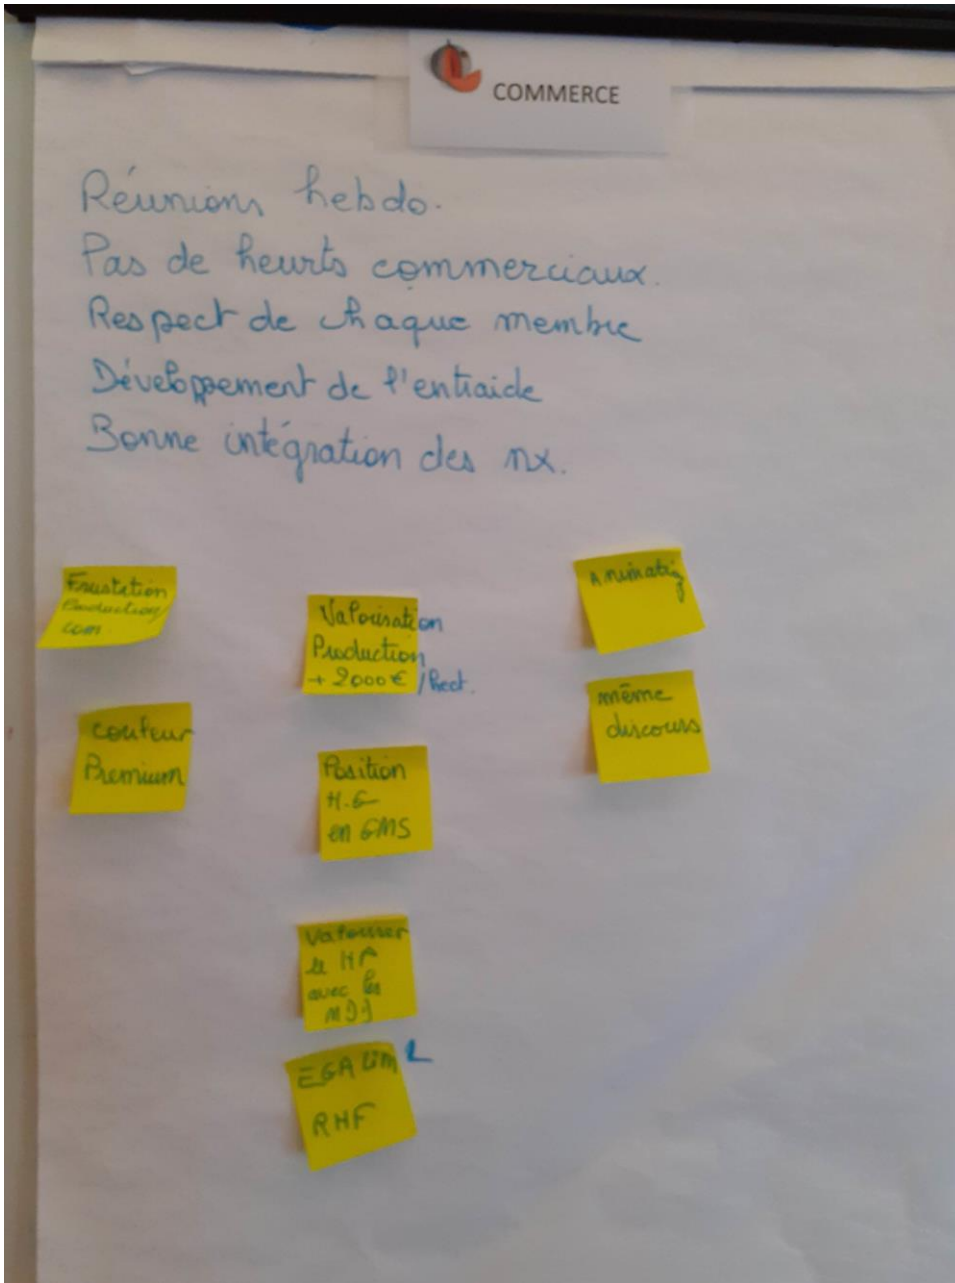 COMMERCE
Réunions hebdo.
Pas de heurts commerciaux.
Respect de chaque membre
Développement de l'entraide
Bonne intégration des nx.
Frustation
Production/
com.
couteur
Premium
Valorisation
Production
+ 2000 € / hect.
Position
H.G
en GMS
Valoriser
le
avec les
MDD
EGALIM 2
RHF
Animatiç
même
discours